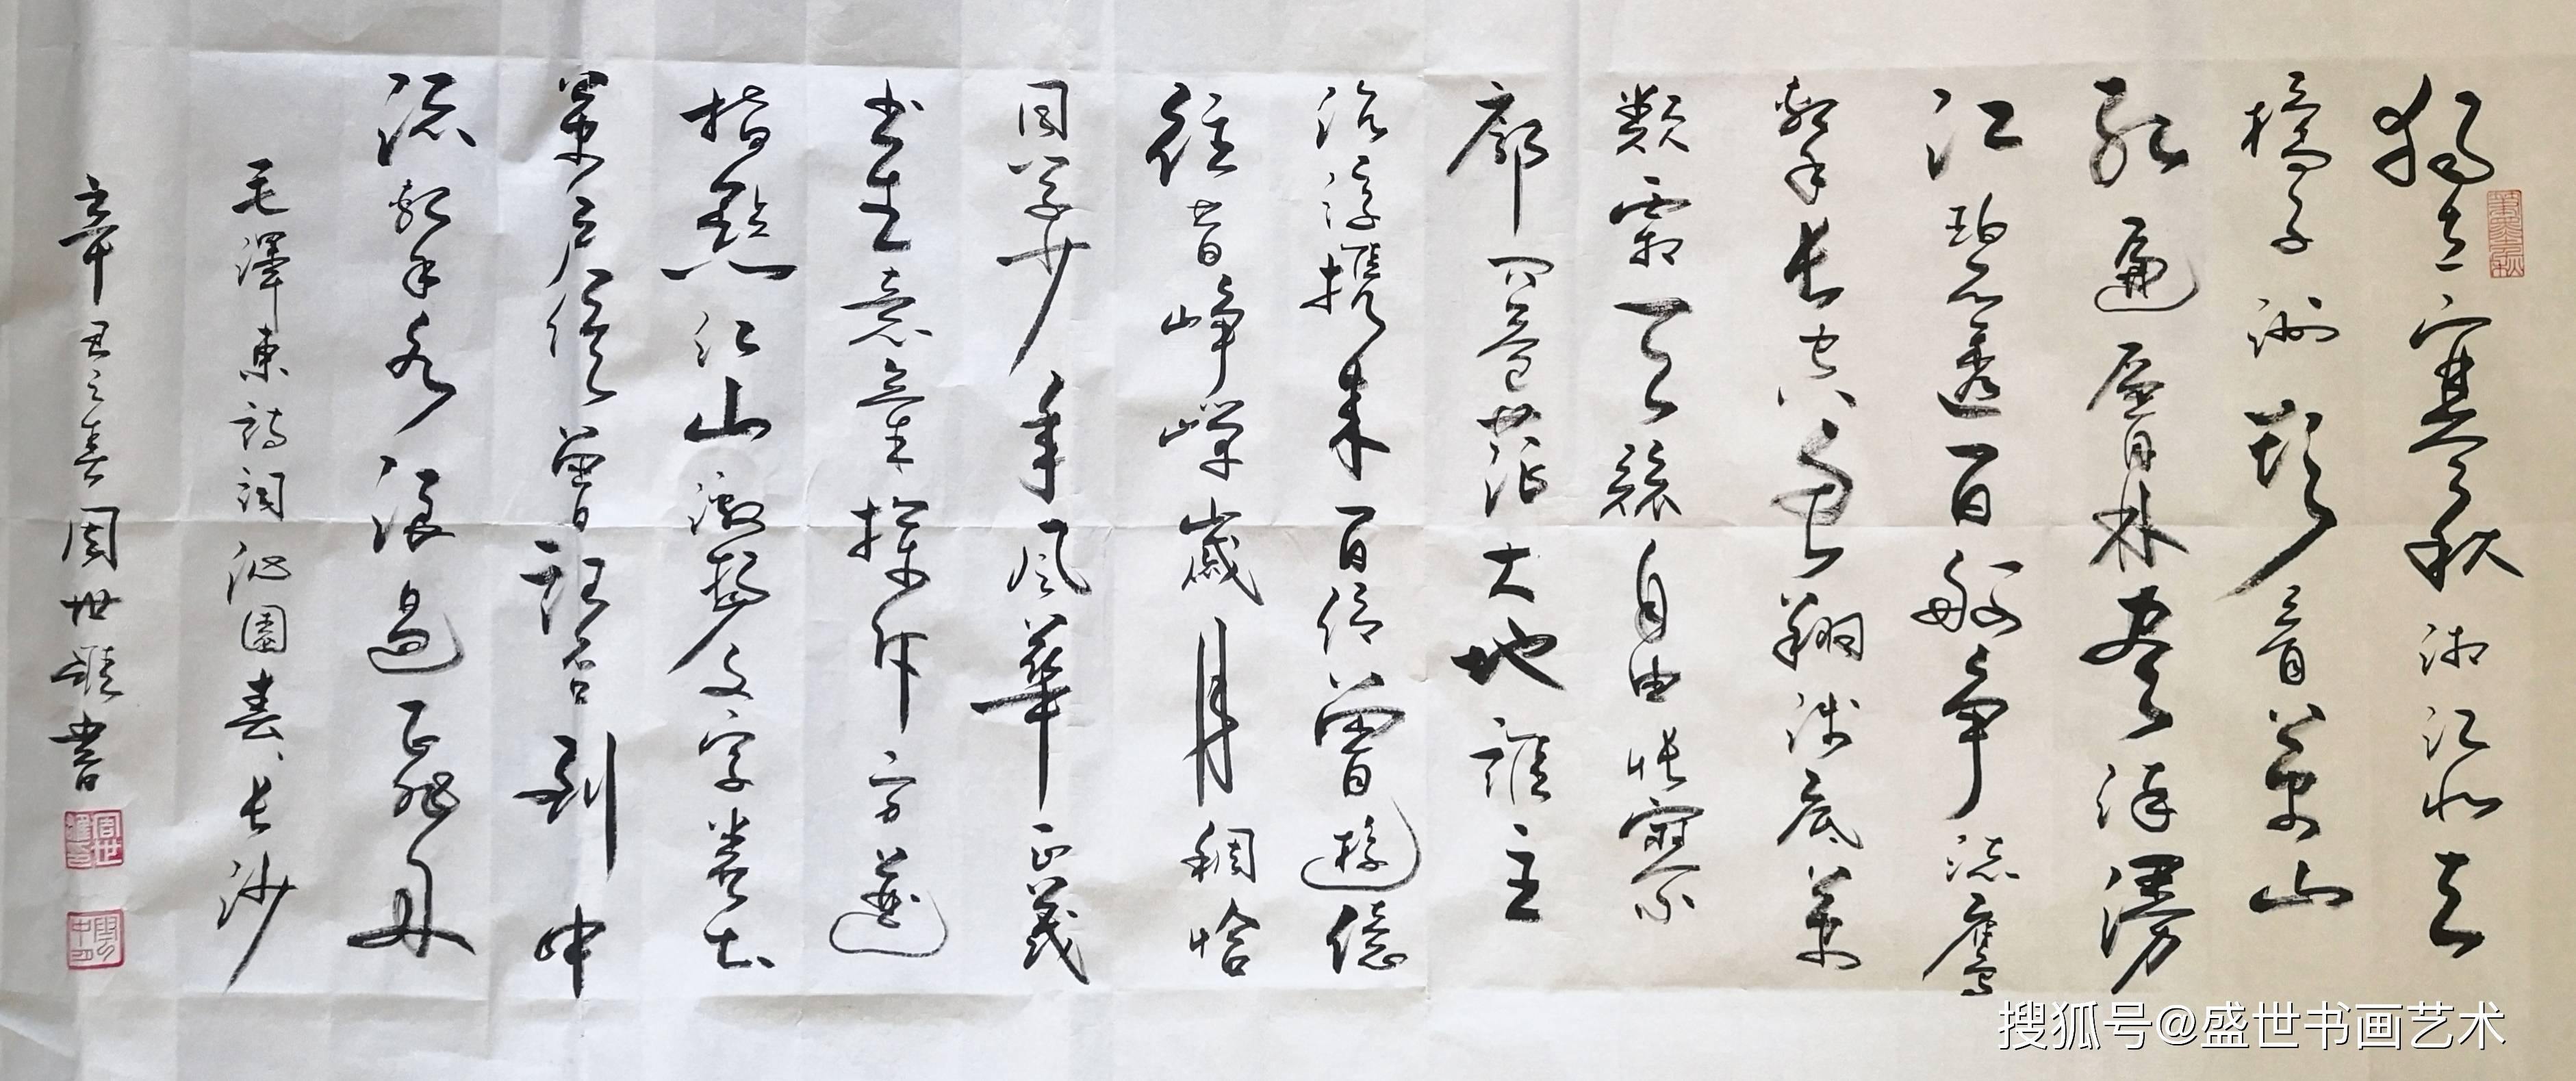 獨立寒秋湘江北去
橘子洲頭看萬山
紅遍層林盡染漫
江碧透百舸爭流鷹
擊長空魚翔淺底萬
類霜天競自由悵寥
廓問蒼茫大地誰主
沉浮攜來百侶曾遊憶
往昔崢嶸歲月稠恰
同學少年風華正茂
書生意氣揮斥方遒
指點江山激揚文字糞土
萬戶侯曾記否到中
流擊水浪遏飛舟
毛澤東詩詞沁園春、長沙
辛丑之春周世雄書
周世雄印
搜狐号@盛世书画艺术